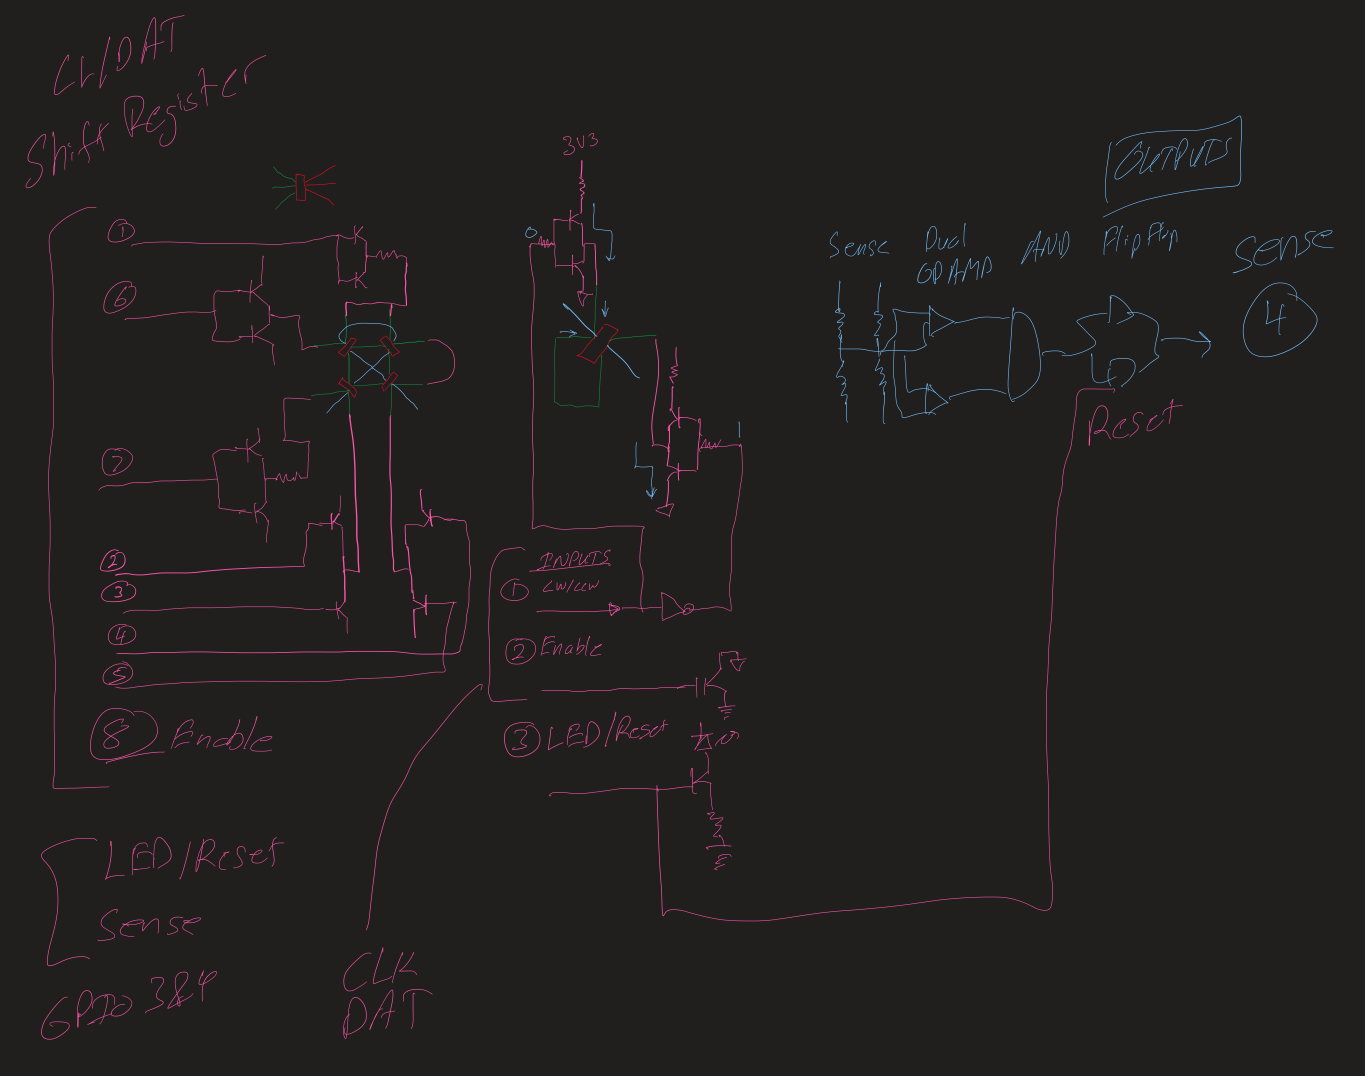 CLK/DAT
Shift Register
①
⑥
⑦
②
③
④
⑤
⑧ Enable
LED/Reset
Sense
GPIO 3&4
CLK
DAT
3V3
0
1
INPUTS
① CW/CCW
② Enable
③ LED/Reset
OUTPUTS
Sense
Dual
OPAMP
AND
FlipFlop
Sense
④
Reset